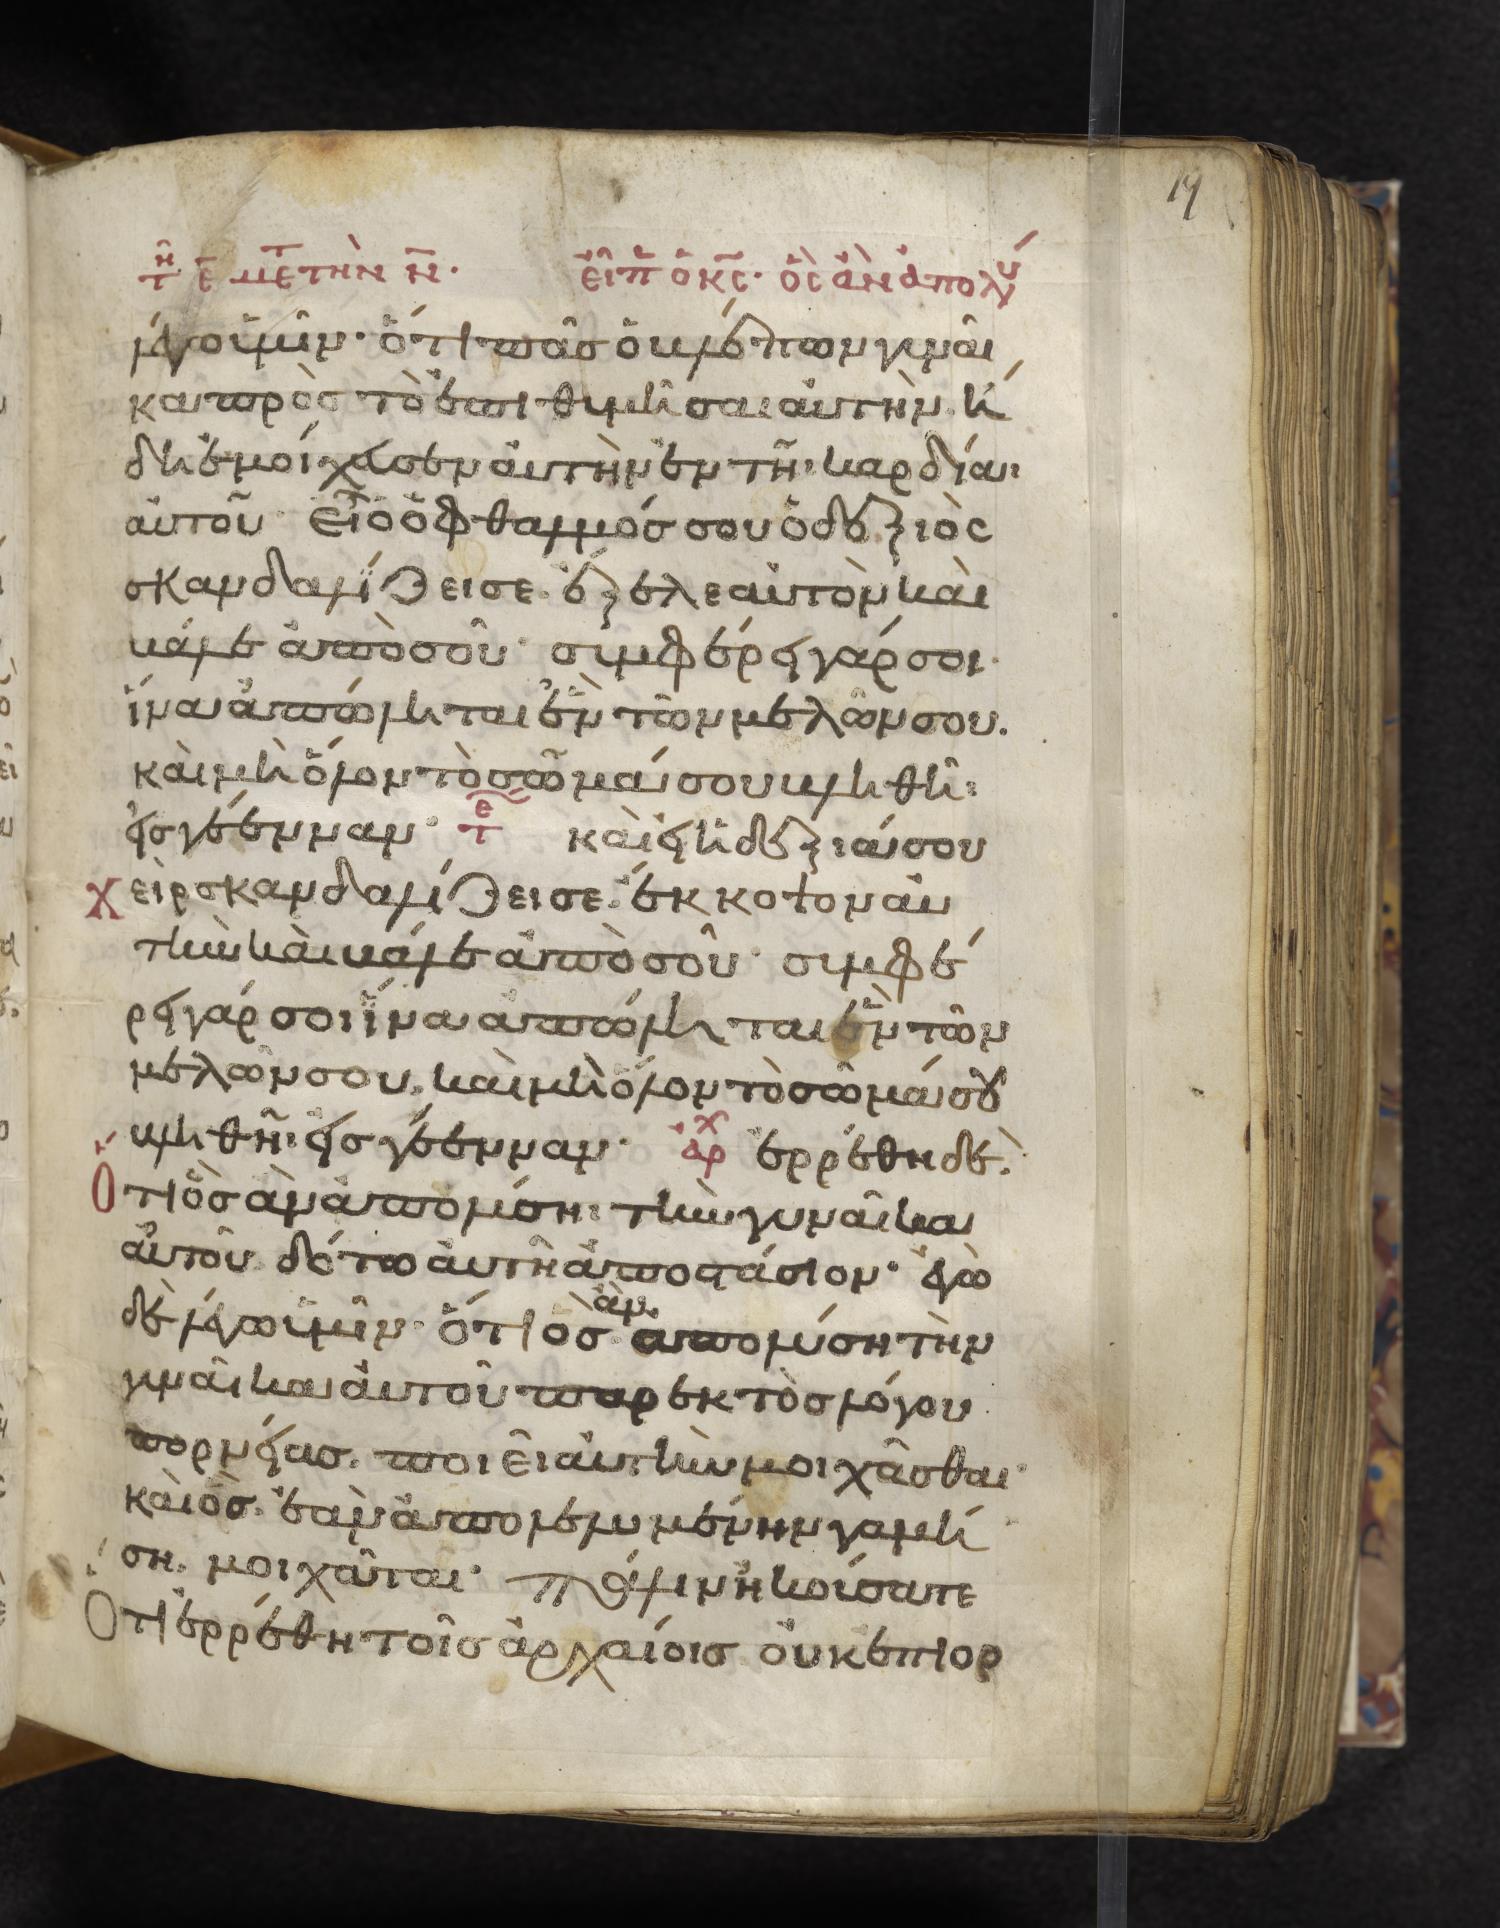 19
τῆ ε̄ μετ τὴν ν̄· εἶπ ὁ κς· ὃς ἂν ἀπολύ
λέγω ὑμῖν· ὅτι πᾶς ὁ βλέπων γυναῖ
κα πρὸς τὸ ἐπιθυμῆσαι αὐτὴν ἤ
δη ἐμοίχευσεν αὐτὴν ἐν τῆι καρδίαι
αὐτοῦ· εἰ ὁ ὀφθαλμός σου ὁ δεξιὸς
σκανδαλίζει σε. ἔξελε αὐτὸν καὶ
βάλε ἀπὸ σοῦ· συμφέρει γάρ σοι·
ἵνα ἀπώληται ἓν τῶν μελῶν σου.
καὶ μὴ ὅλον τὸ σῶμά σου βληθῆι
εἰς γέενναν· τε καὶ εἰ ἡ δεξιά σου
χεὶρ σκανδαλίζει σε. ἔκκοψον αὐ
τὴν καὶ βάλε ἀπὸ σοῦ· συμφέ
ρει γάρ σοι ἵνα ἀπώληται ἓν τῶν
μελῶν σου. καὶ μὴ ὅλον τὸ σῶμά σου
βληθῆι εἰς γέενναν· ἀρχ ἐρρέθη δὲ.
ὅτι ὃς ἂν ἀπολύση· τὴν γυναῖκα
αὐτοῦ. δότω αὐτῆ ἀποστάσιον· ἐγὼ
δὲ λέγω ὑμῖν· ὅτι ὃς ἂν ἀπολύση τὴν
γυναῖκα αὐτοῦ παρεκτὸς λόγου
πορνείας. ποιεῖ αὐτὴν μοιχᾶσθαι·
καὶ ὃς. ἐὰν ἀπολελυμένην γαμή
ση. μοιχᾶται· πάλιν ἠκούσατε
ὅτι ἐρρέθη τοῖς ἀρχαίοις οὐκ ἐπιορ